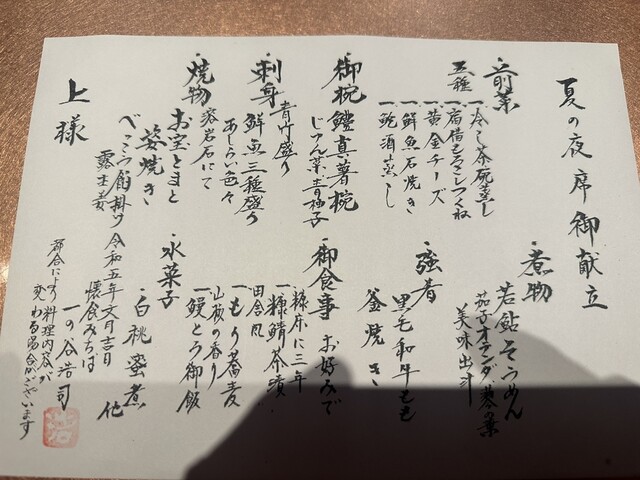 夏の夜席御献立
・前菜
五種
一冷し茶碗蒸し
一宿借もろこしつくね
一黄金チーズ
一鮮魚石焼き
一鮑酒蒸し
・御椀
鱧真薯椀
じゅん菜青柚子
・刺身
青竹盛り
鮮魚三種盛り
あしらい色々
・焼物
溶岩石にて
お宝とまと
姿焼き
べっこう餡掛け
露生姜
・煮物
若鮎そうめん
茄子オランダ蓼の葉
美味出汁
・強肴
黒毛和牛もも
釜焼き
・御食事
お好みで
糠床に三年
一糠鯖茶漬
田舎風
一もり蕎麦
山椒の香り
一鰻とろ御飯
・水菓子
白桃蜜煮
他
令和五年文月吉日
懐食みちば
一の谷浩司
都合により料理内容が
変わる場合がございます
上様